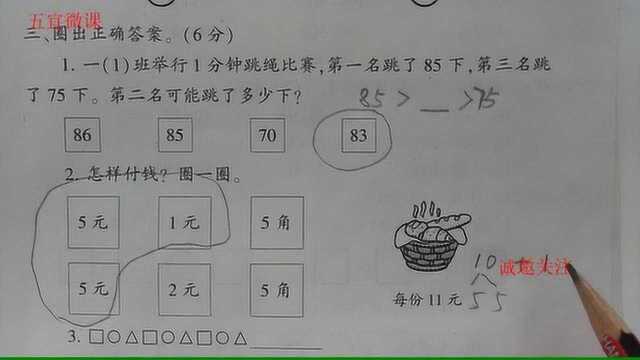 五宜微课
三、圈出正确答案。(6分)
1. 一(1)班举行1分钟跳绳比赛,第一名跳了85下,第三名跳
了75下。第二名可能跳了多少下? 85 > __ >75
86 85 70 83
2. 怎样付钱?圈一圈。
5元 1元 5角
5元 2元 5角
10 1
诚邀关注
每份11元 5 5
3. □○△□○△□○△________